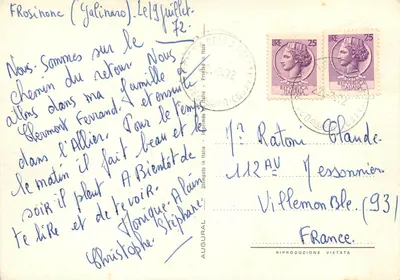 FROSINONE (Galinaro). Le 19 Juillet.
72
Nous Sommes sur le
chemin du retour. Nous
allons dans ma famille à
Clermont Ferrand. et ensuite
dans l'Allier. Pour le temps
le matin il fait beau et le
soir il pleut A Bientôt de
te lire et de te voir.
Monique. Alain
Christophe. Stéphane
AUGURAL
LIRE 25
LIRE 25
Mr Ratoni Claude.
112 AV Messonnier
Villemomble. (93)
France.
RIPRODUZIONE VIETATA